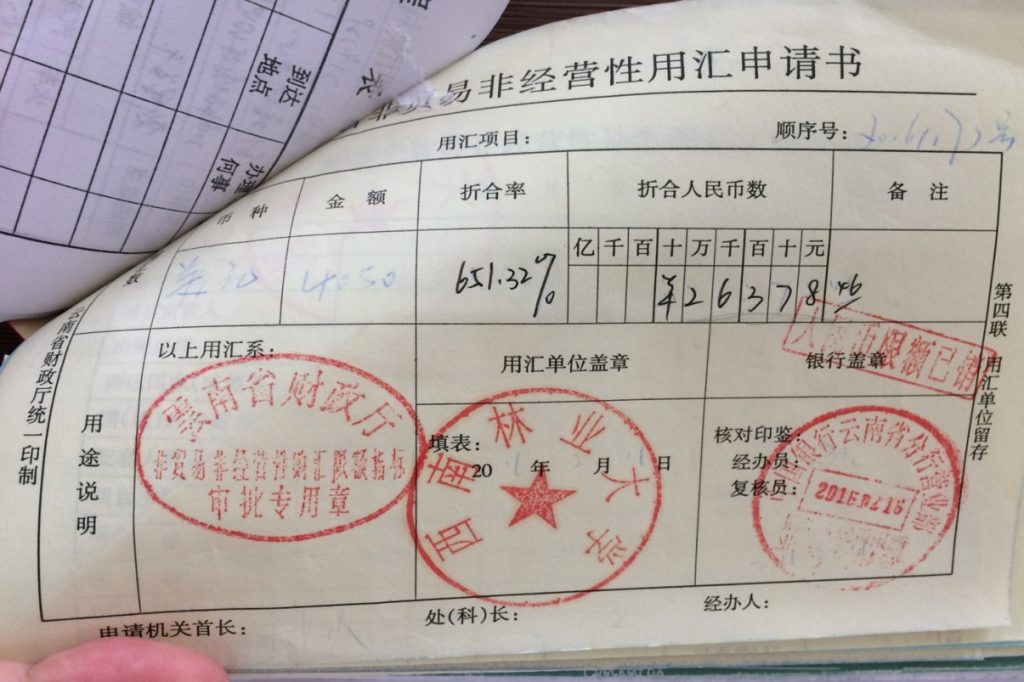 到达
地点
办理
何事
贸易非经营性用汇申请书
用汇项目：
顺序号：
币种
金额
折合率
折合人民币数
备注
亿千百十万千百十元
数
美元
4050
651.32%
¥26378.46
以上用汇系：
用汇单位盖章
银行盖章
人民币限额已销
用途说明
云南省财政厅
非贸易非经营性购汇限额指标
审批专用章
填表：
20 年 月 日
西南林业大学
核对印鉴：
经办员：
复核员：
银行云南省分行营业部
2016.02.16
云南省财政厅统一印制
第四联
用汇单位留存
申请机关首长：
处(科)长：
经办人：